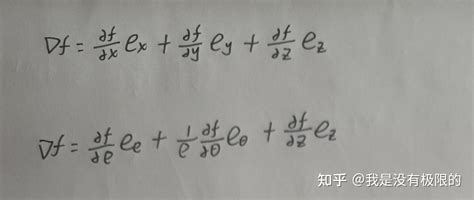 ∇f = ∂f/∂x eₓ + ∂f/∂y e_y + ∂f/∂z e_z
∇f = ∂f/∂ρ e_ρ + 1/ρ ∂f/∂θ e_θ + ∂f/∂z e_z
知乎 @我是没有极限的